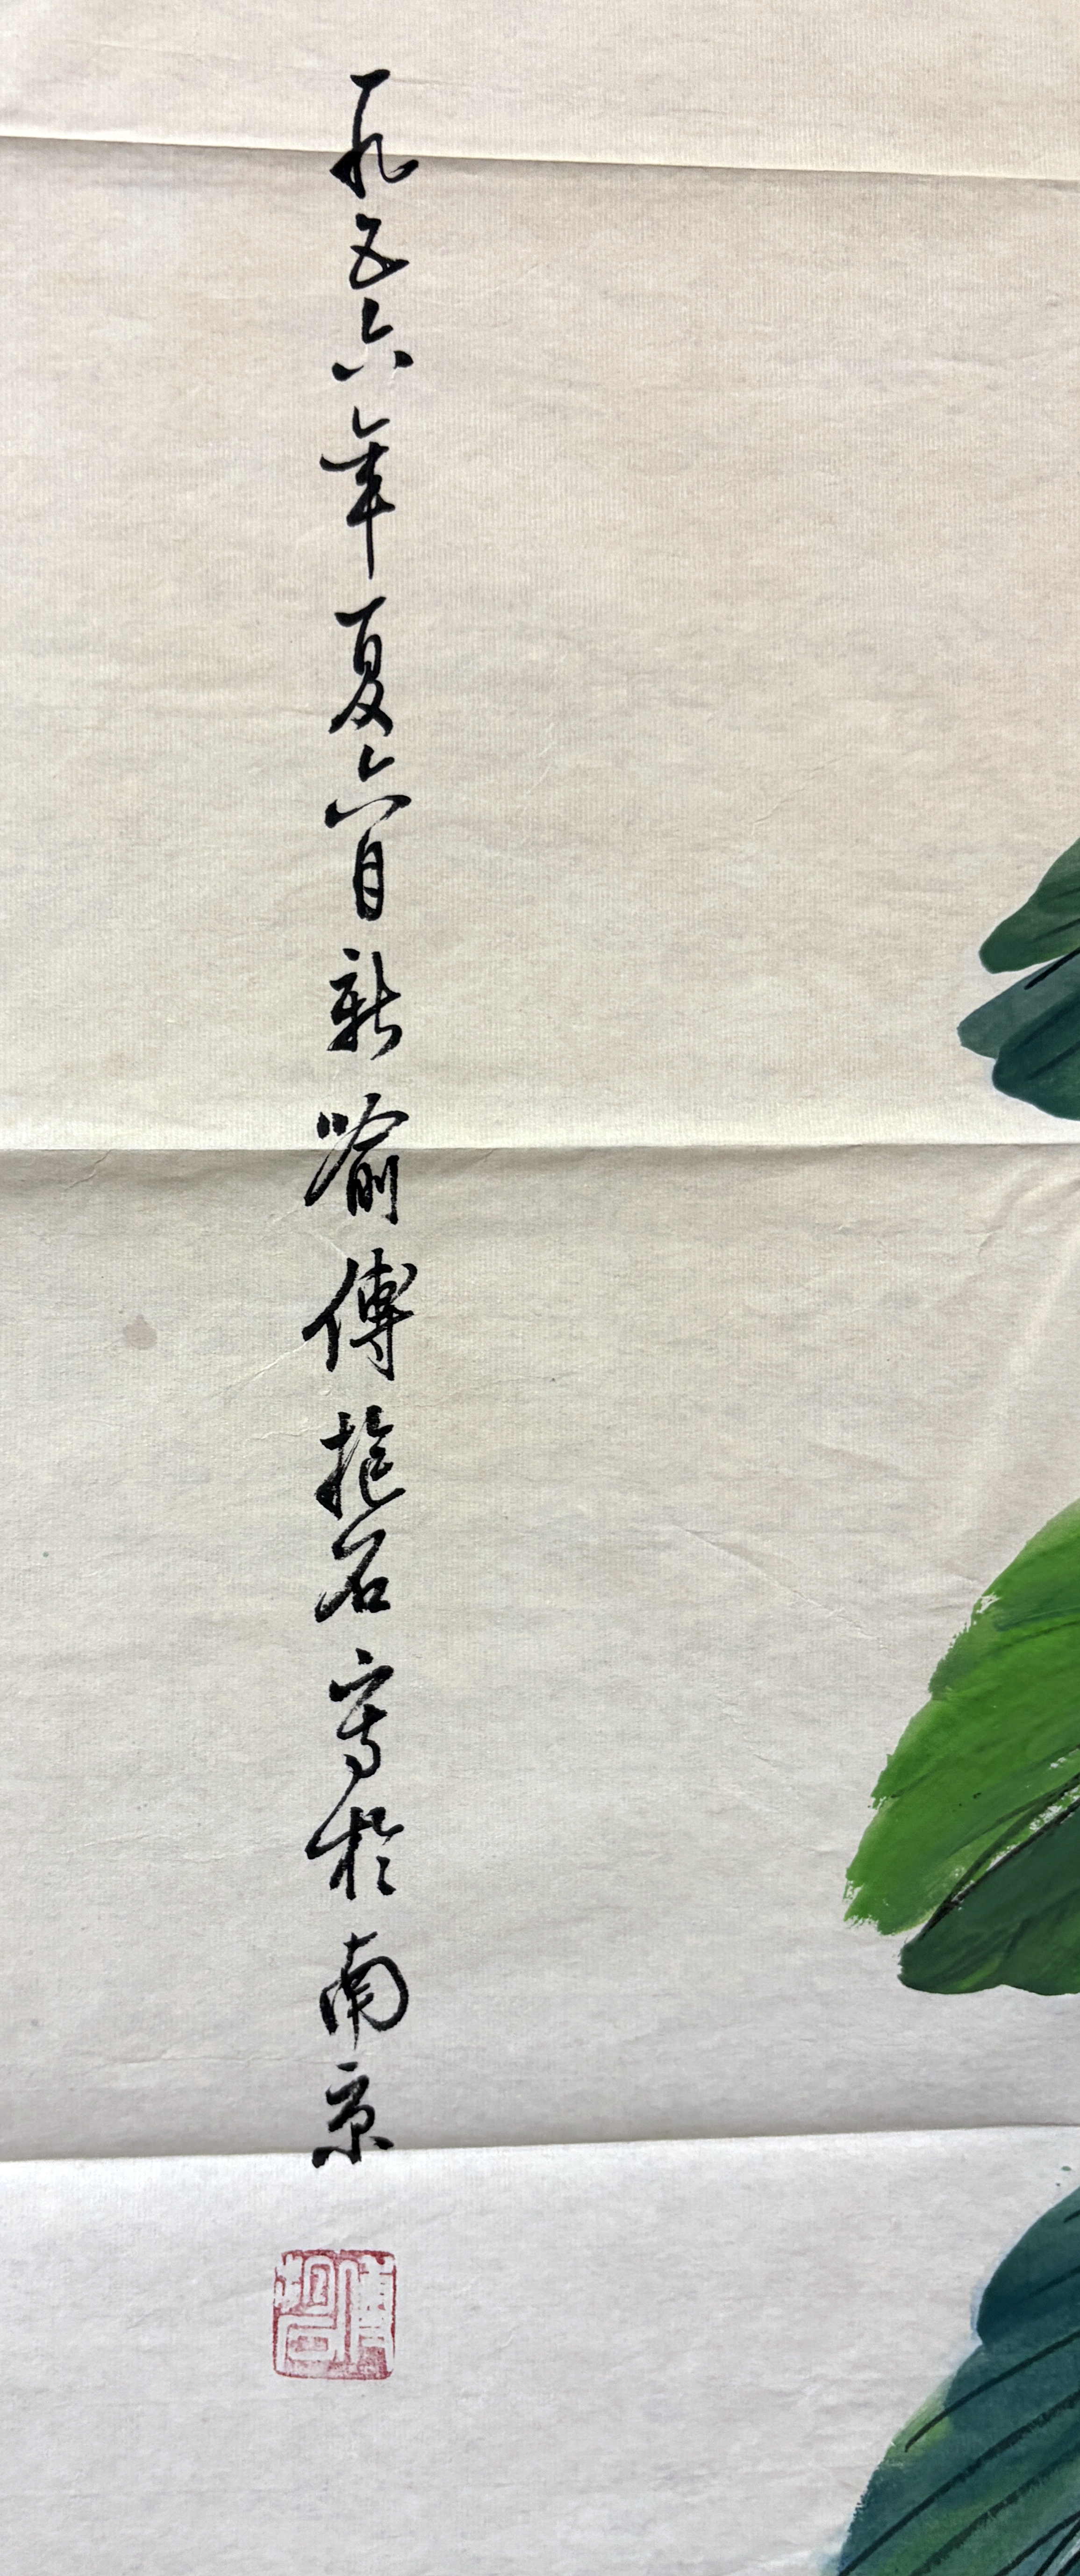 一九五六年夏六月新喻傅抱石寫於南京
傅抱石